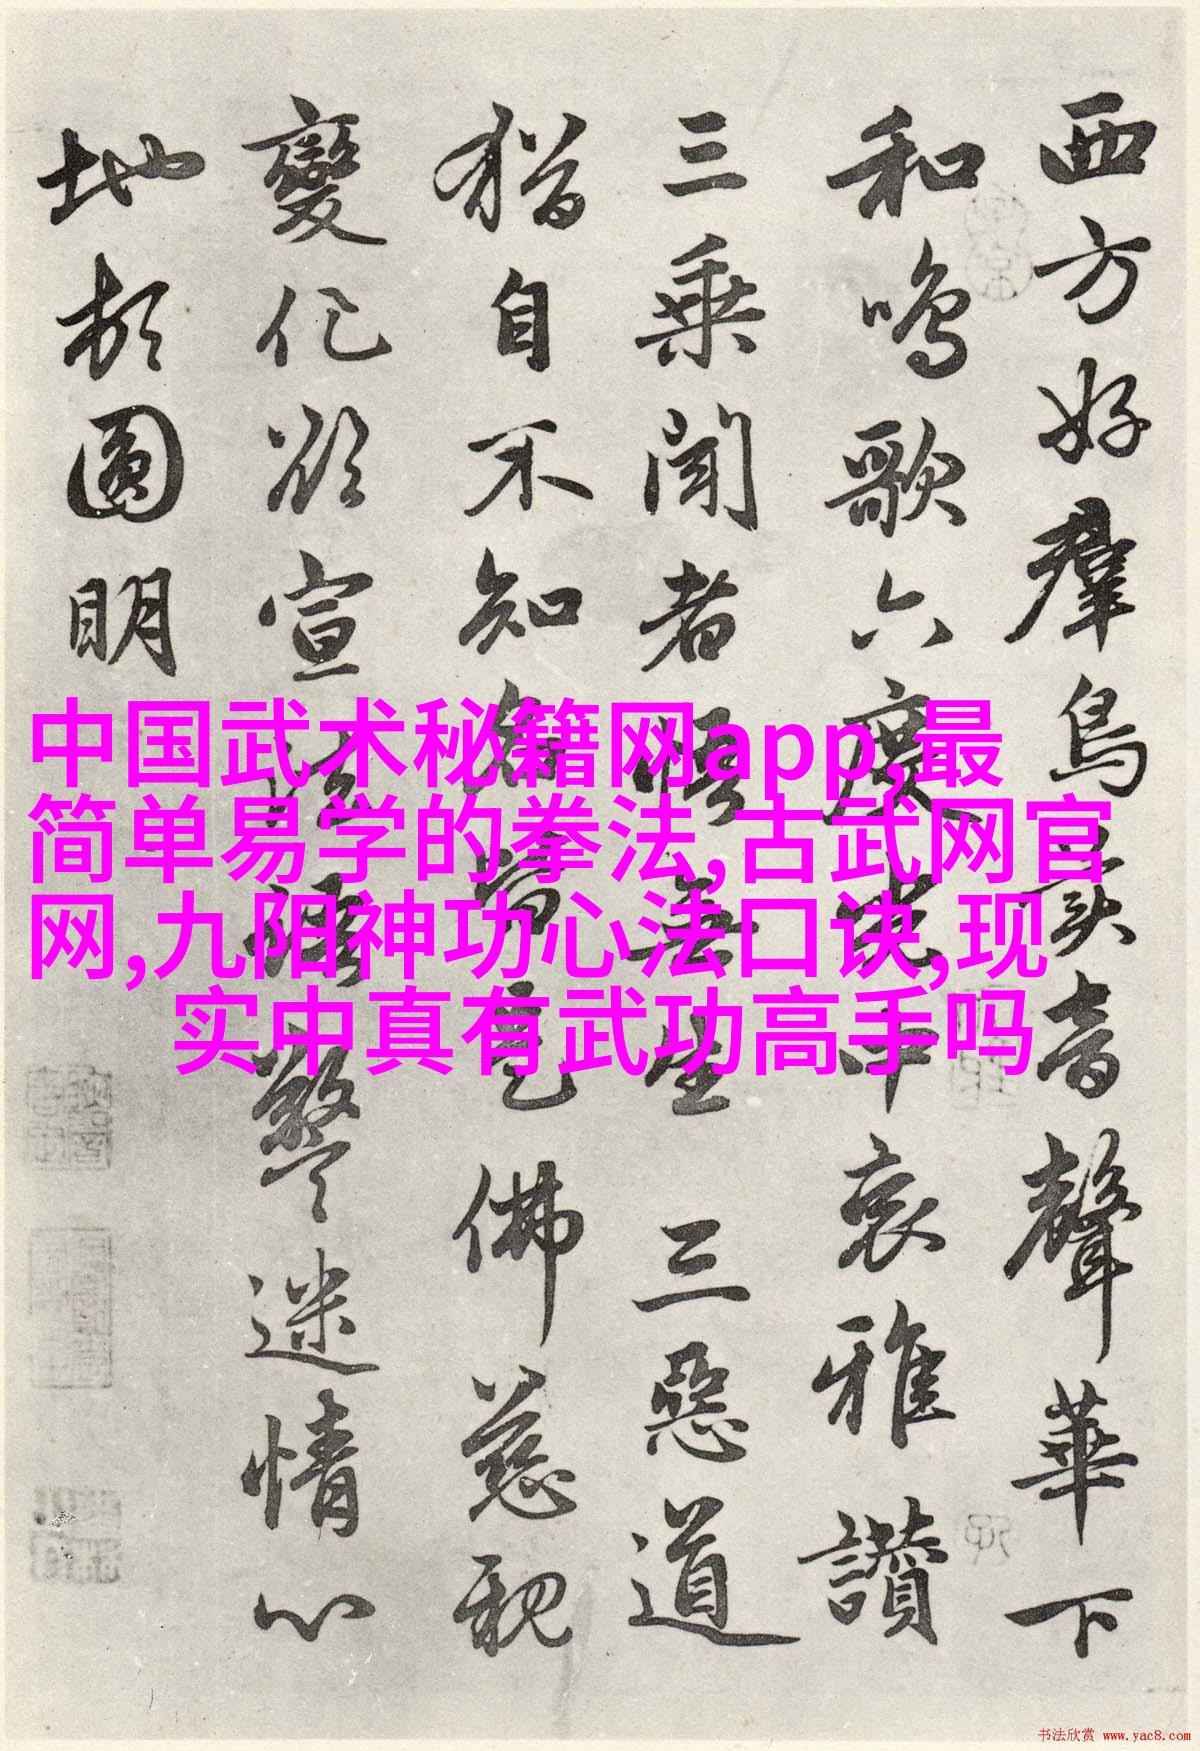 西方好群鳥音聲華下
和鳴歌六度光中哀雅讚
三乘聞者悟無生 三惡道
猶自不知名皆是佛慈親
變化欲宣警迷情心
地頓圓明
中国武术秘籍网app,最
简单易学的拳法,古武网官
网,九阳神功心法口诀,现
实中真有武功高手吗
书法欣赏 www.yac8.com